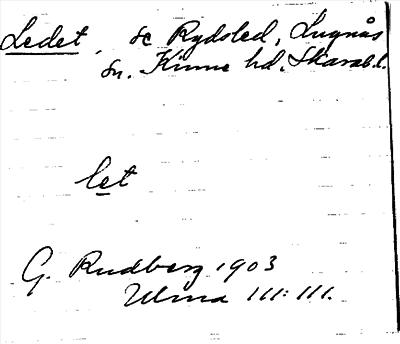 Ledet, se Rydsled, Lugnås
sn. Kinne hd. Skarab.l.
let
G. Rudberg 1903
Ulma 111:111.